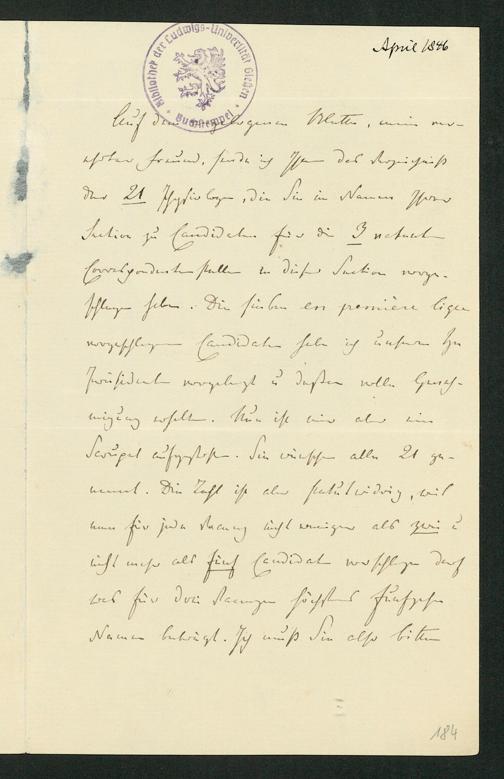 April 1846
Bibliothek der Ludwigs-Universität Gießen
Buchstempel
Auf dem beiliegenden Blatte, mein ver-
ehrter Freund, sende ich Ihnen das Verzeichniß
der 21 Physiologen, die Sie im Namen Ihrer
Section zu Candidaten für die 3 vacanten
Correspondentenstellen in dieser Section vorge-
schlagen haben. Die sieben en première ligne
vorgeschlagenen Candidaten habe ich unserem
Präsidenten vorgelegt u dessen volle Geneh-
migung erhalten. Nun ist mir aber ein
Scrupel aufgestoßen. Sie wünschen alle 21 ge-
nannt. Die Zahl ist aber statutwidrig, weil
man für jede Vacanz nicht weniger als zwei u
nicht mehr als fünf Candidaten vorschlagen darf
was für drei Vacanzen höchstens fünfzehn
Namen beträgt. Ich muß Sie also bitten
184